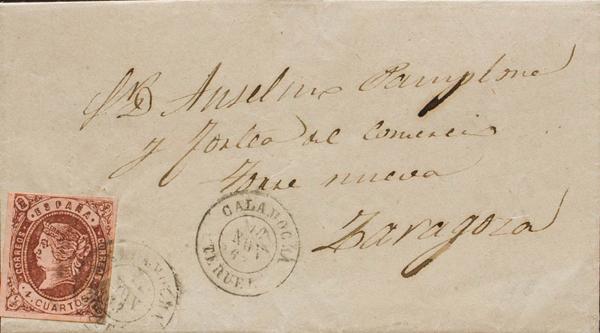 Anselmo Pamplona
y del Comercio
Torre nueva
Zaragoza
CALAMOCHA
NOV
TERUEL
ESPAÑA
CORREOS
4 CUARTOS